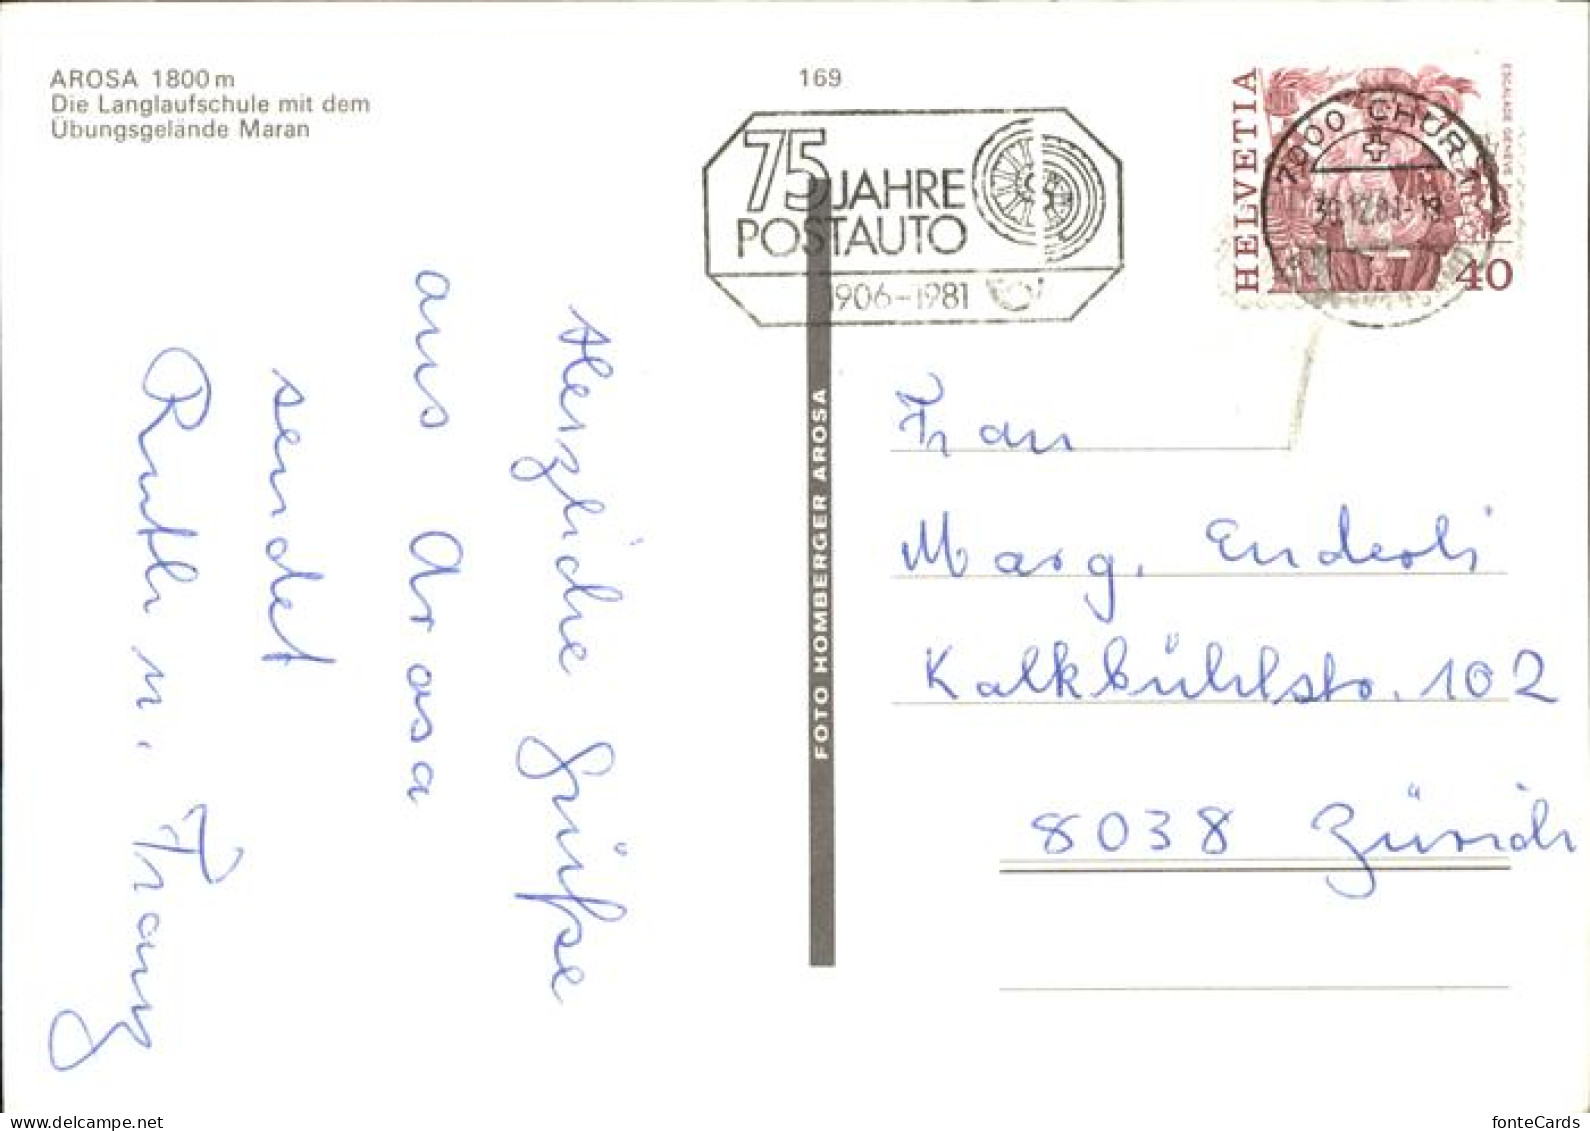 AROSA 1800 m
Die Langlaufschule mit dem
Übungsgelände Maran
169
75 JAHRE
POSTAUTO
1906-1981
HELVETIA
ESCALADE GENÈVE
40
7000 CHUR 1
30.12.81-18
Herzliche Grüße
aus Arosa
sendet
Ruth u. Franz
FOTO HOMBERGER AROSA
Frau
Marg. Enderli
Kalkbühlstr. 102
8038 Zürich
www.delcampe.net
fonteCards